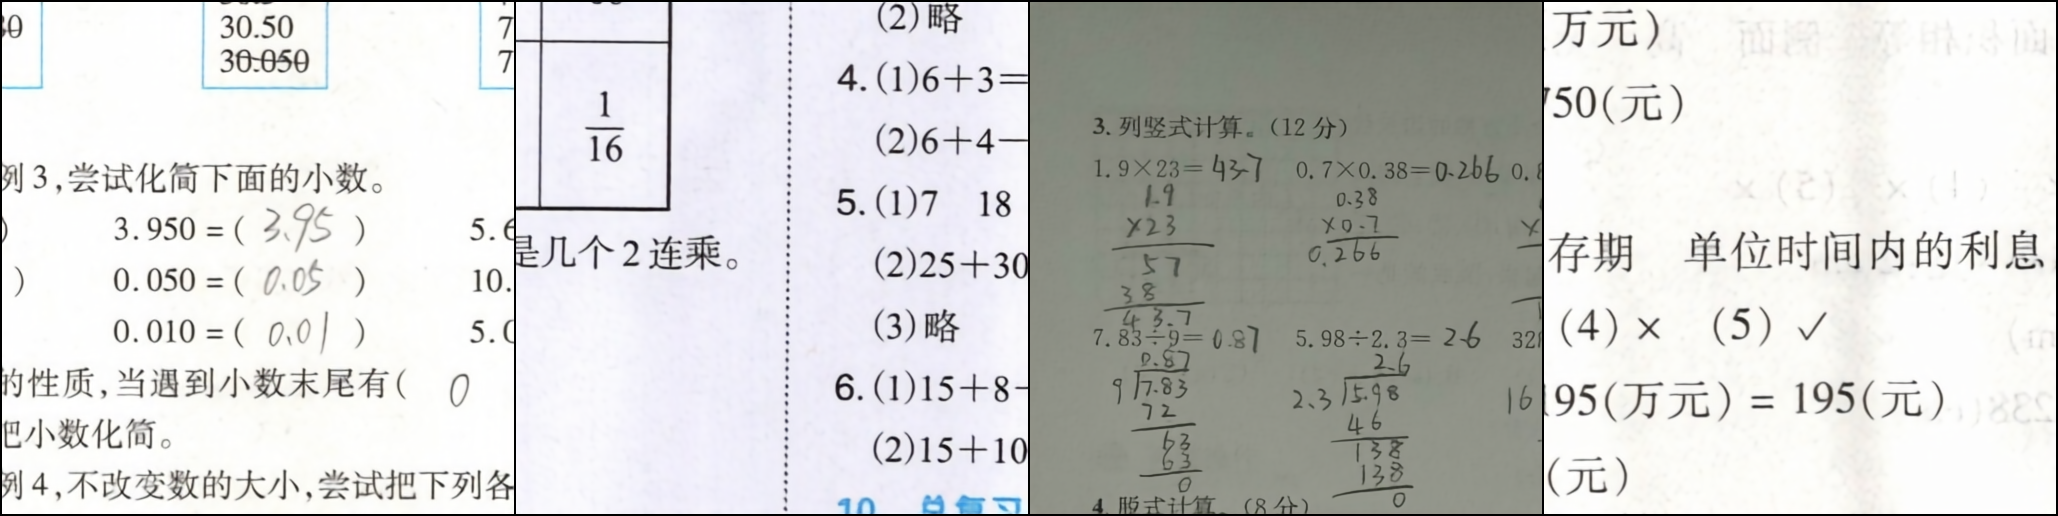 30.50
30.050
例3,尝试化简下面的小数。
3.950=( 3.95 )
0.050=( 0.05 )
10.
0.010=( 0.01 )
的性质,当遇到小数末尾有( 0
把小数化简。
例4,不改变数的大小,尝试把下列各
1/16
是几个2连乘。
(2)略
4.(1)6+3=
(2)6+4-
5.(1)7 18
(2)25+30
(3)略
6.(1)15+8-
(2)15+10
10 总复习
3.列竖式计算。(12分)
1.9×23=43.7 0.7×0.38=0.266
1.9 0.38
×23 ×0.7
57 0.266
38
43.7
7.83÷9=0.87 5.98÷2.3=2.6
0.87 2.6
9 7.83 2.3 5.98 16
72 46
63 138
63 138
0 0
4.脱式计算。(8分)
万元)
750(元)
存期 单位时间内的利息
(4)× (5)✓
195(万元)=195(元)
(元)